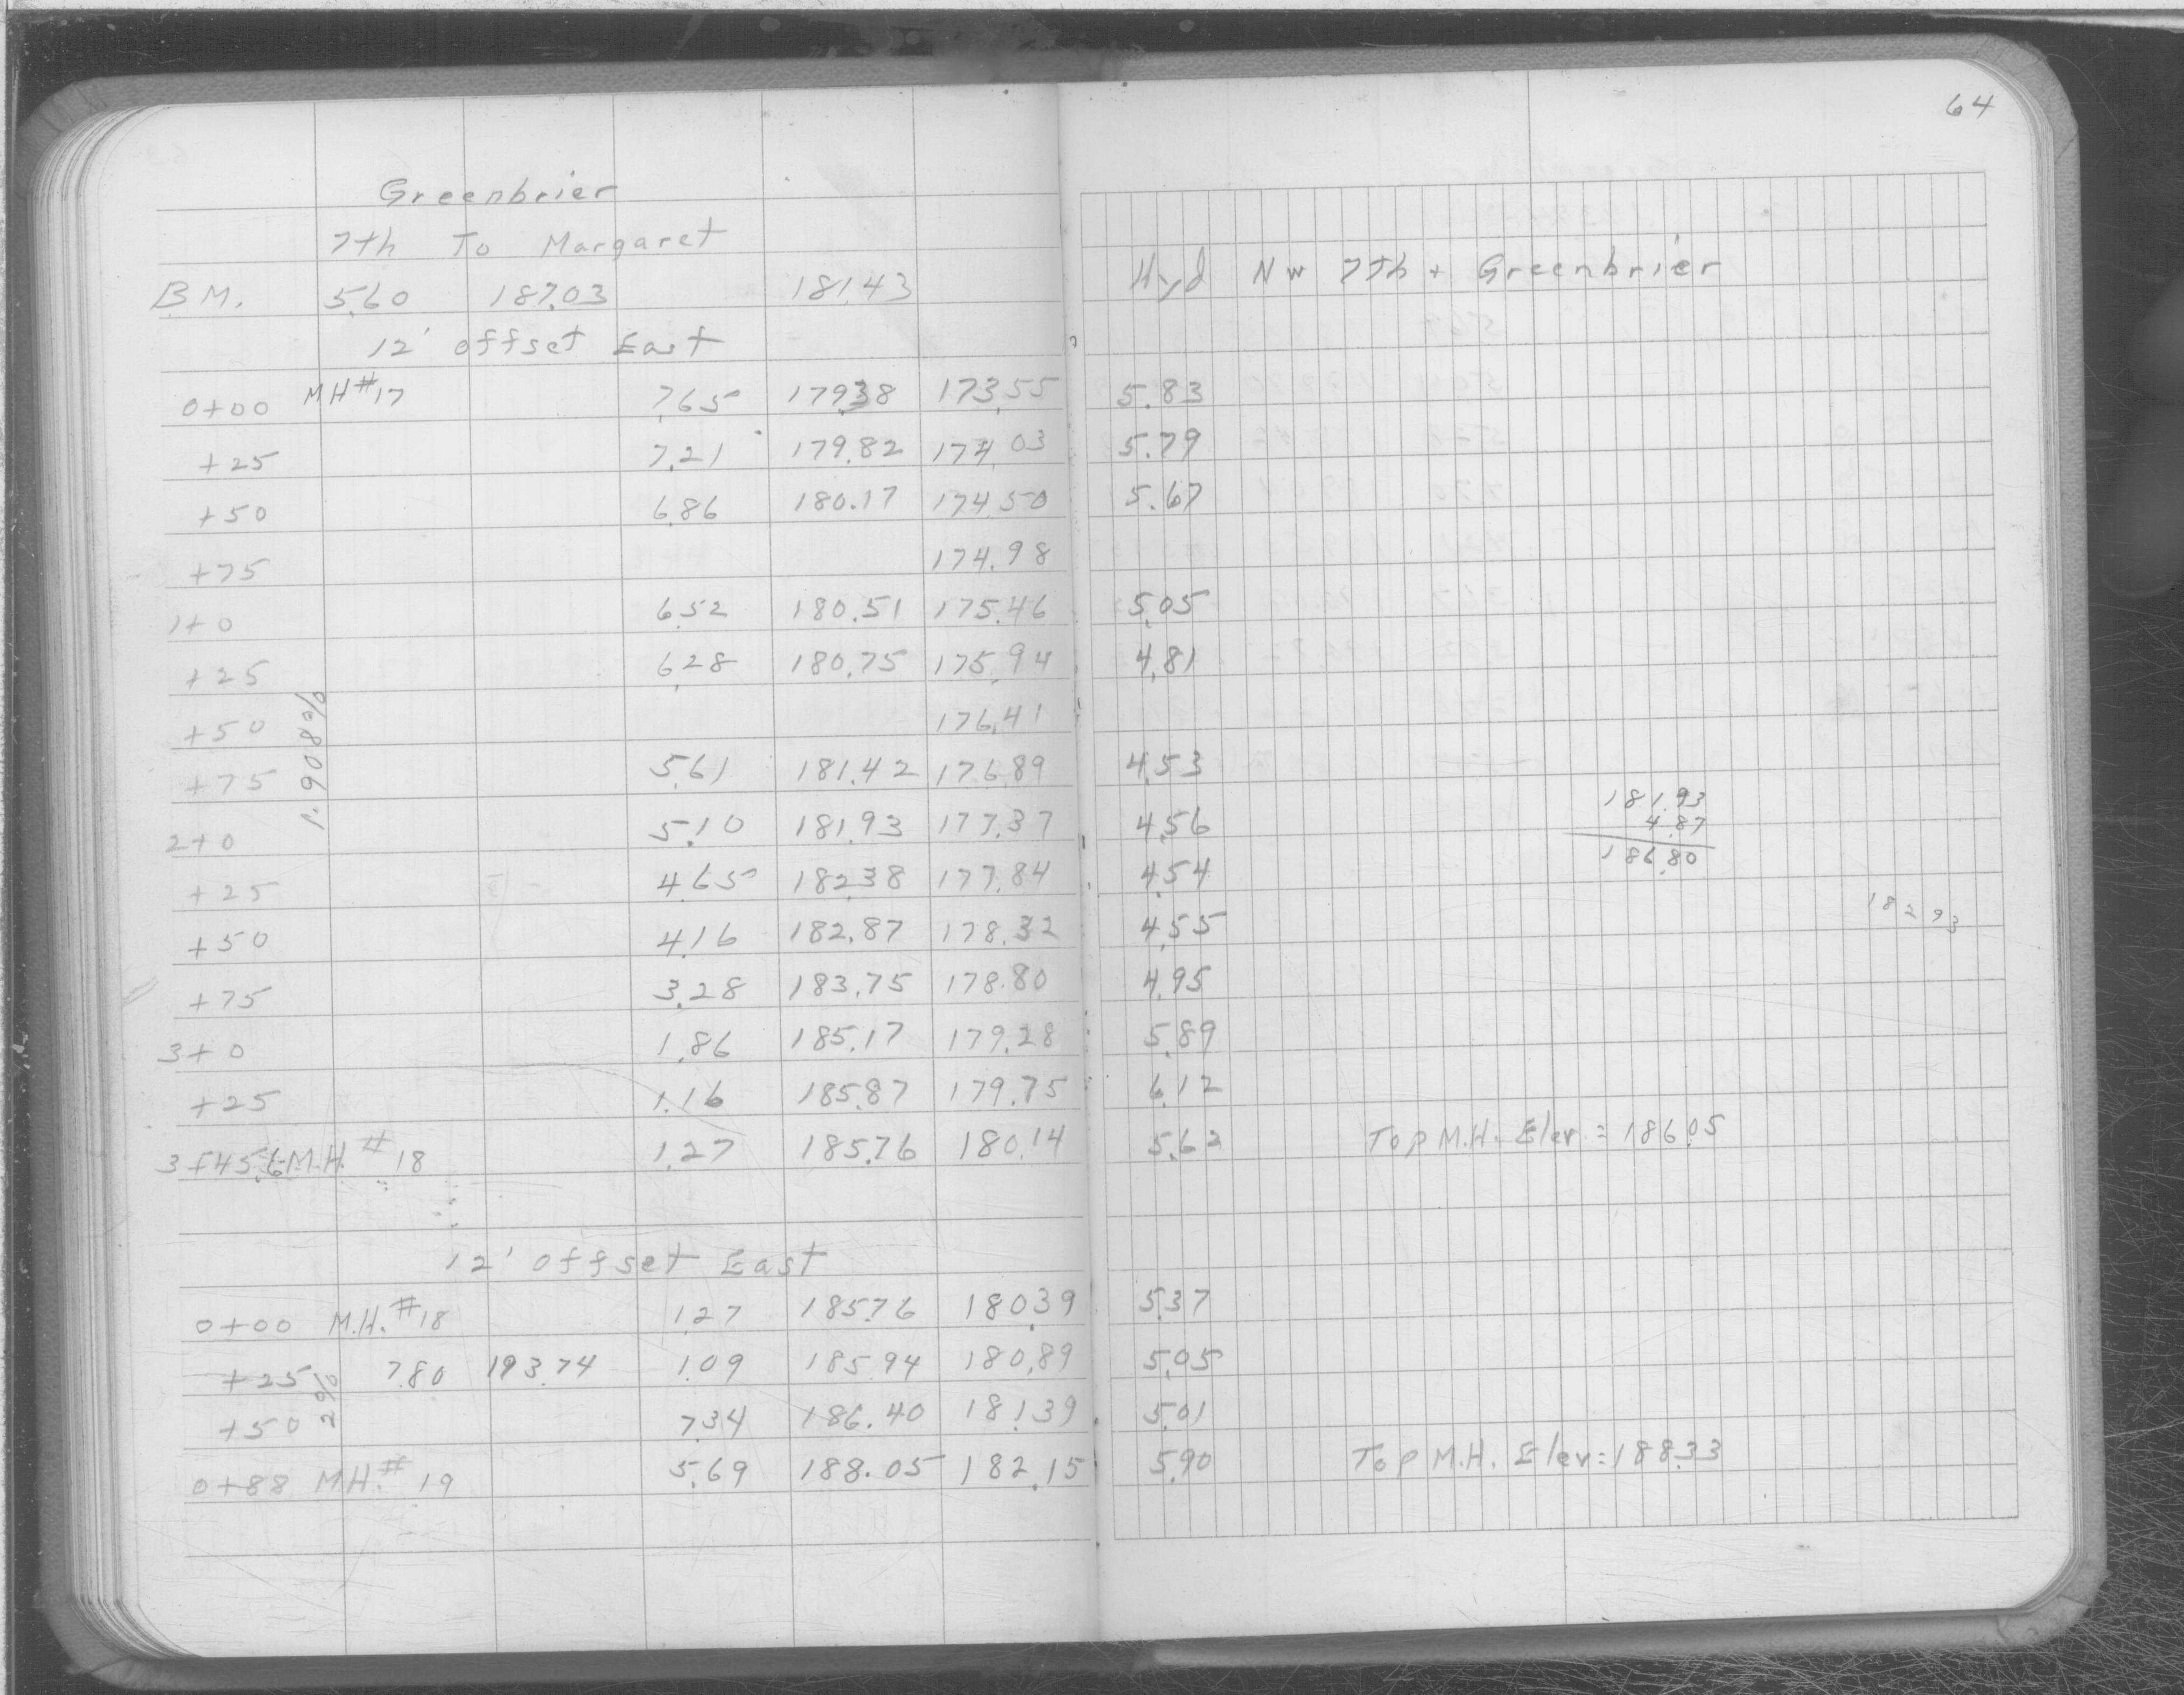 64
Greenbrier
7th To Margaret
B.M. 5.60 187.03 181.43 Hyd NW 7th + Greenbrier
12' offset East
0+00 MH#17 7.65 179.38 173.55 5.83
+25 7.21 179.82 174.03 5.79
+50 6.86 180.17 174.50 5.67
+75 174.98
1+0 6.52 180.51 175.46 5.05
+25 6.28 180.75 175.94 4.81
+50 176.41
1.908%
+75 5.61 181.42 176.89 4.53
2+0 5.10 181.93 177.37 4.56
181.93
4.87
186.80
+25 4.65 182.38 177.84 4.54
+50 4.16 182.87 178.32 4.55
18293
+75 3.28 183.75 178.80 4.95
3+0 1.86 185.17 179.28 5.89
+25 1.16 185.87 179.75 6.12
3+45.6 M.H. #18 1.27 185.76 180.14 5.62 Top M.H. Elev = 186.05
12' offset East
0+00 M.H.#18 1.27 185.76 180.39 5.37
+25 7.80 193.74 1.09 185.94 180.89 5.05
2%
+50 7.34 186.40 181.39 5.01
0+88 M.H.#19 5.69 188.05 182.15 5.90 Top M.H. Elev = 188.33